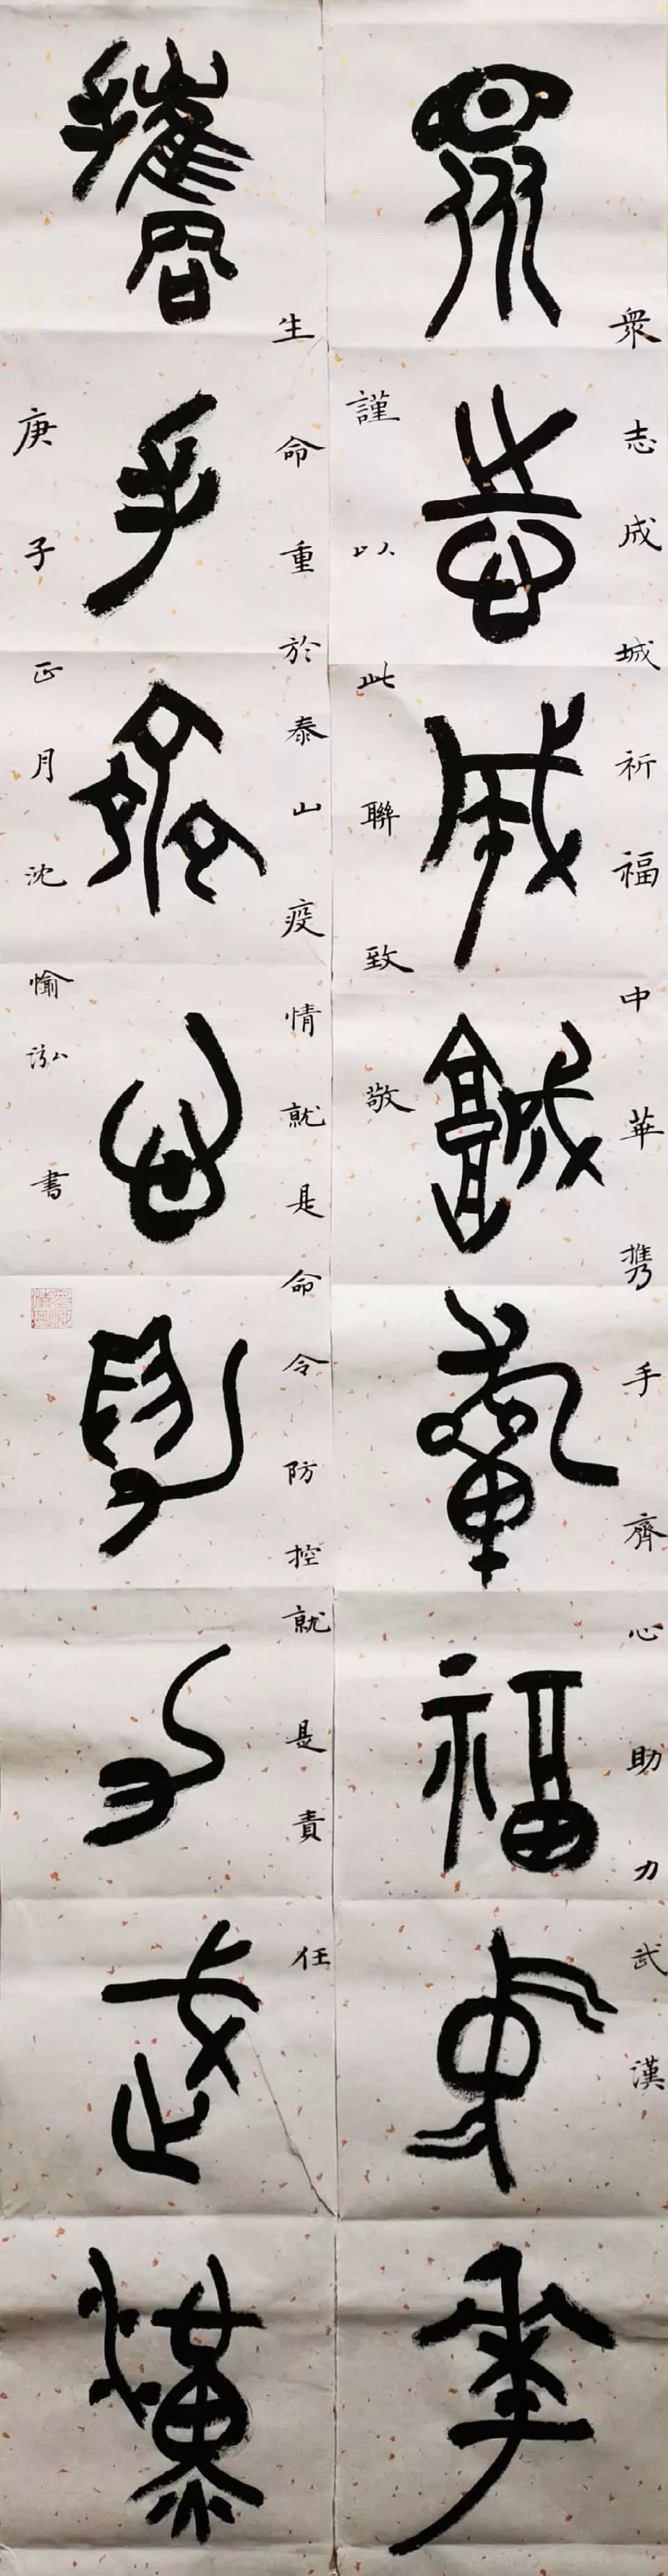 衆志成城祈福中華携手齊心助力武漢
眾志成城祈福中華
謹以此聯致敬
生命重於泰山疫情就是命令防控就是責任
攜手齊心助力武漢
庚子正月沈愉書